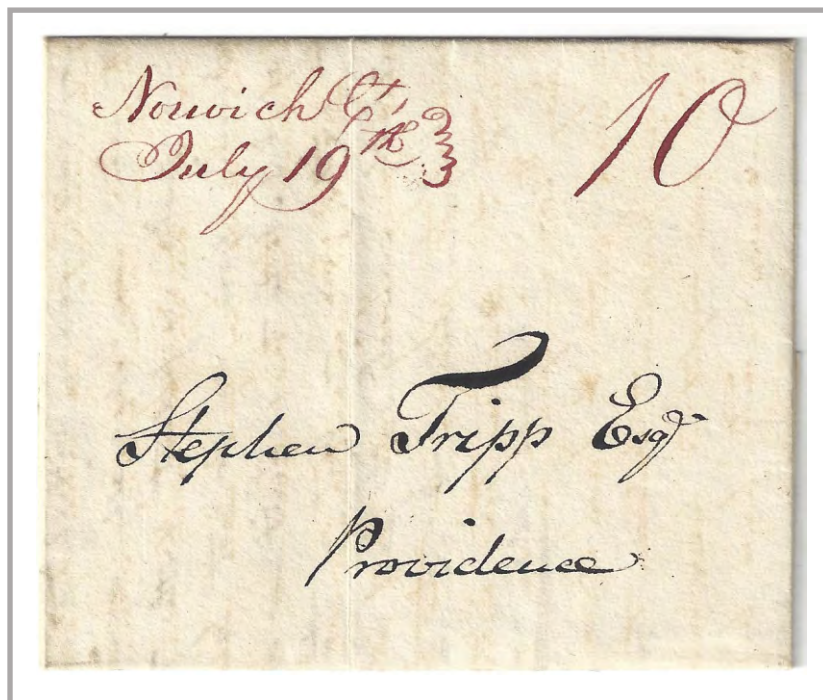 Norwich Ct,
July 19th
10
Stephen Tripp Esqr
Providence